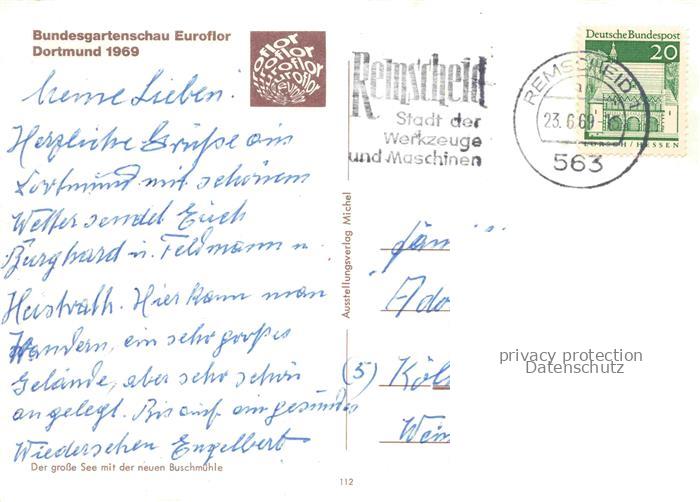 Bundesgartenschau Euroflor
Dortmund 1969
Meine Lieben!
Herzliche Grüße aus
Dortmund mit schönem
Wetter sendet Euch
Burghard u. Feldmann u.
Hier kann man
Wandern, ein sehr großes
Gelände, aber sehr schön
angelegt. Bis auf ein gesundes
Wiedersehen Engelbert
Der große See mit der neuen Buschmühle
Euroflor
Ausstellungsverlag Michel
112
Remscheid
Stadt der
Werkzeuge
und Maschinen
REMSCHEID 1
23.6.69
563
Deutsche Bundespost
20
LORSCH/HESSEN
Fam
Ado
(5) Köl
privacy protection
Datenschutz